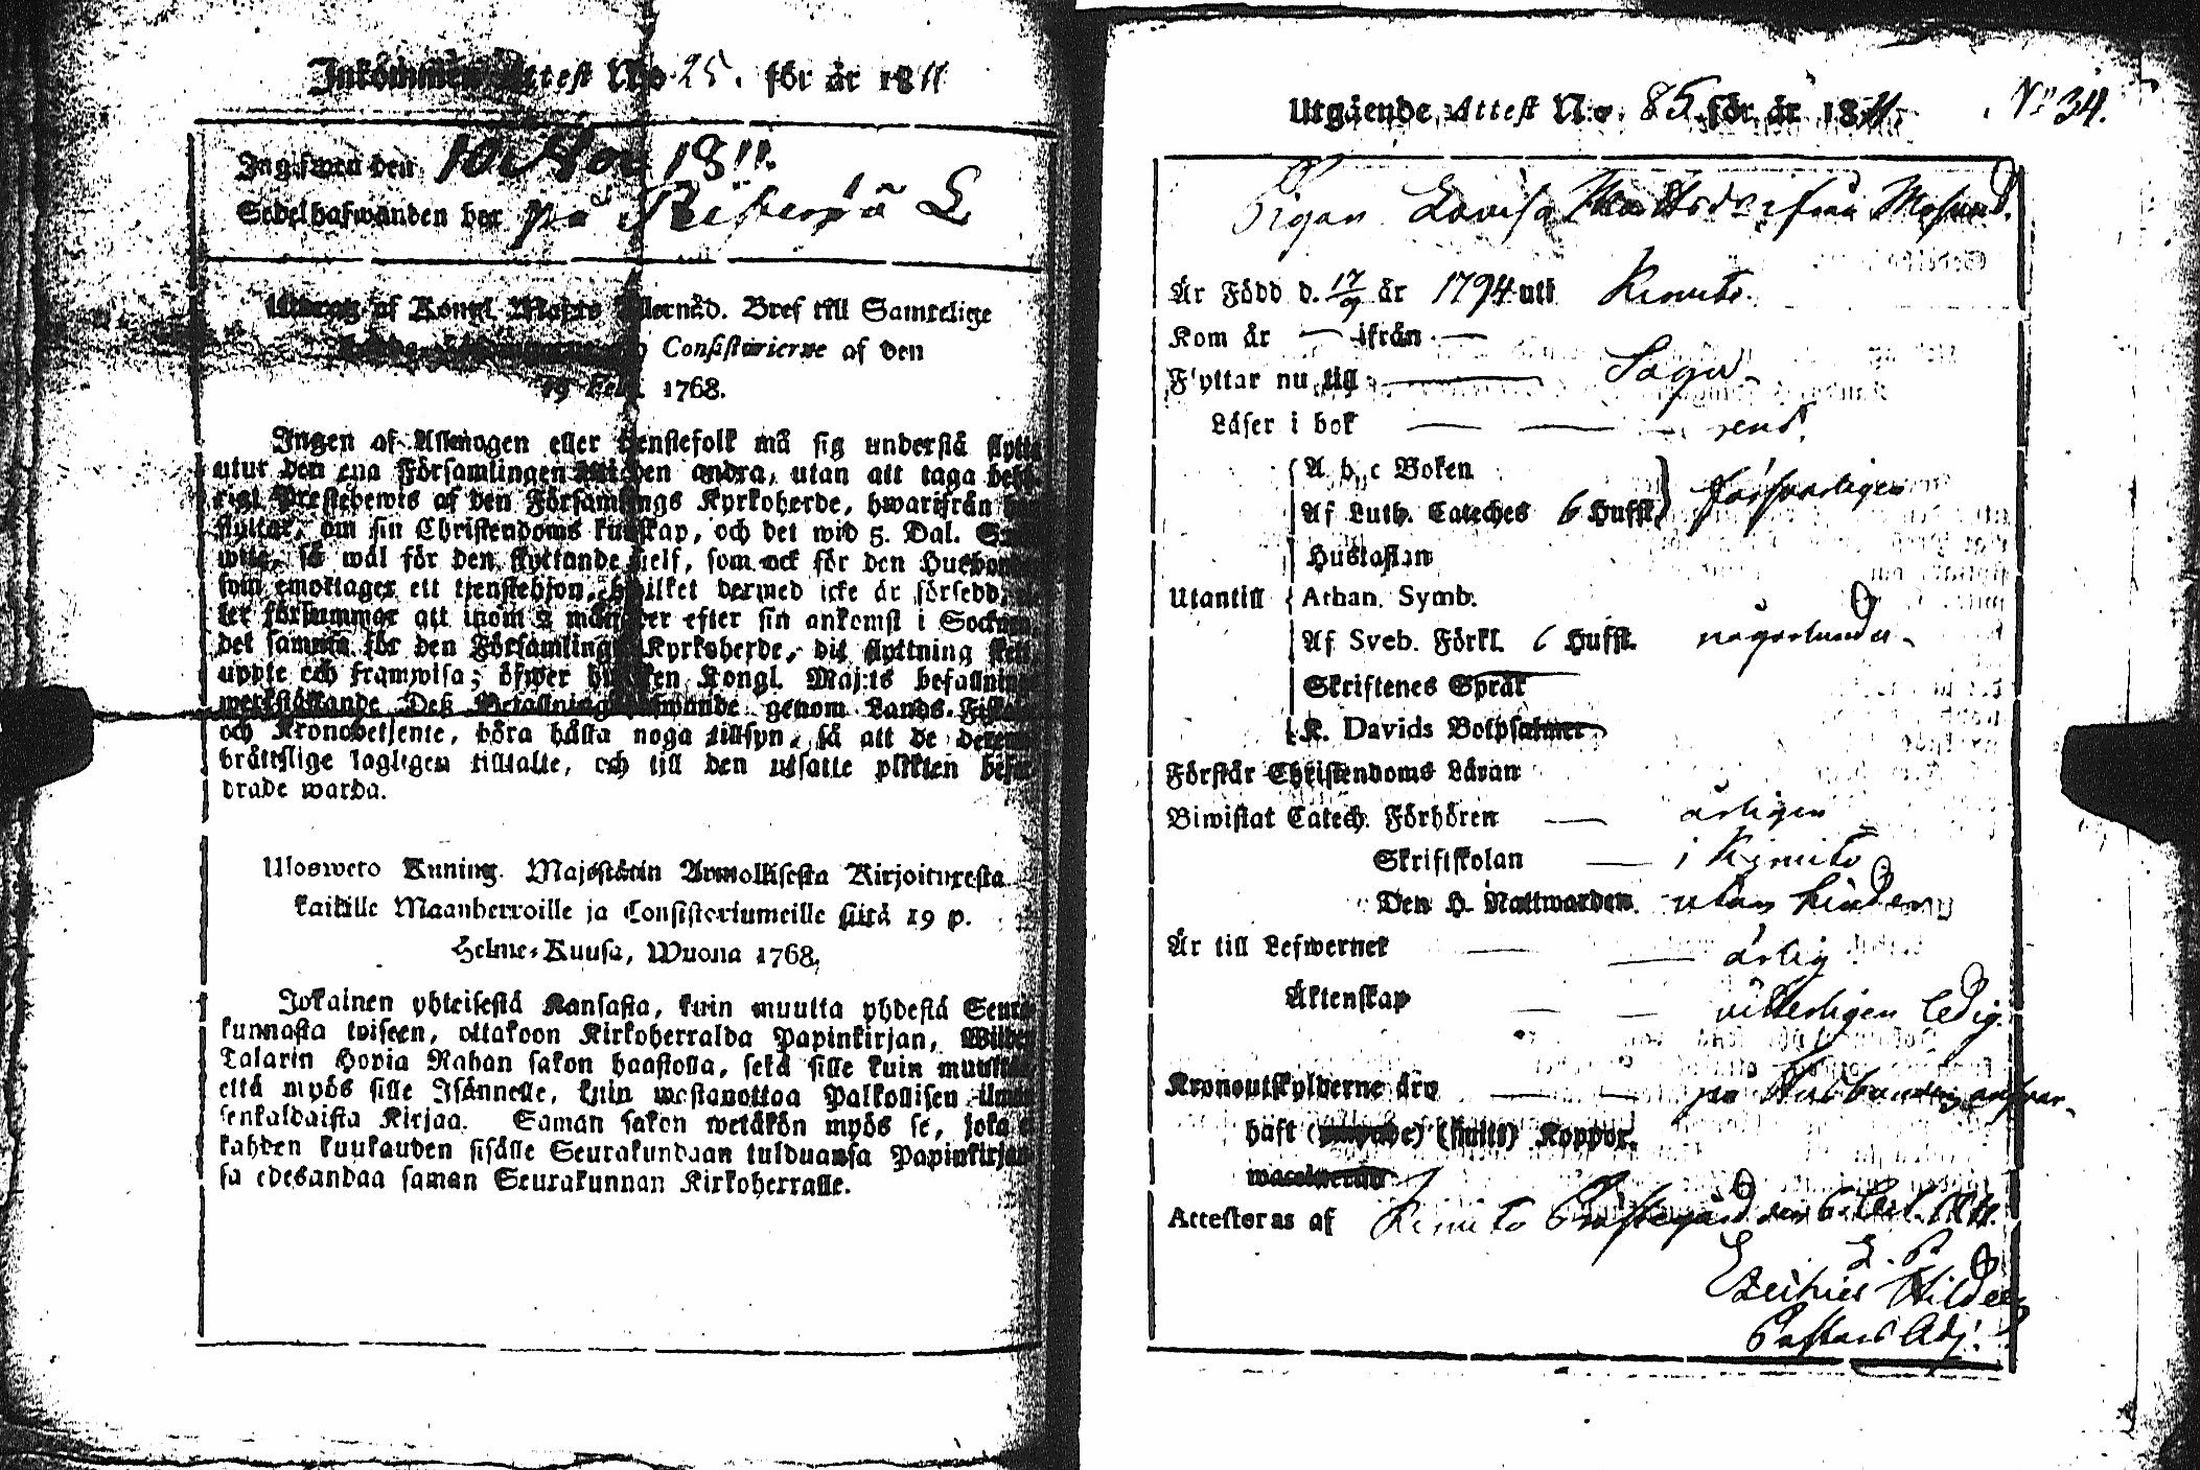 Inkommen Attest No 25. för år 1811
Ingifwen den 10 Nov 1811.
Sedelhafwanden bor på
Utdrag af Kongl. Maj:ts Allernåd. Bref till Samtelige
Consistorierne af den
19 Febr. 1768.
Ingen af Allmogen eller tjenstefolk må sig understå flytta
utur den ena Församlingen till den andra, utan att taga behö-
rigt Prestebewis af den Församlings Kyrkoherde, hwarifrån han
flyttar, om sin Christendoms kunskap, och det wid 5. Dal. S:mts
wite, så wäl för den flyttande sielf, som ock för den Husbonde
som emottager ett tjenstehjon, hwilket dermed icke är försedd, el-
ler försummar att inom 2 månader efter sin ankomst i Socknen,
det samma för den Församlings Kyrkoherde, dit flyttning sker,
uppte och framwisa; öfwer hwilken Kongl. Maj:ts befallning
werkställande Deß Befallningshafwande genom Lands-Fiskal
och Kronobetjente, böra hålla noga tillsyn, så att de deremot
bråttslige lagligen tilltalte, och till den utsatte plikten befor-
drade warda.
Ulosweto Kuning. Majestätin Armollisesta Kirjoituxesta
kaikille Maanherroille ja Consistoriumeille siitä 19 p.
Helme-Kuusa, Wuona 1768.
Jokainen yhteisestä Kansasta, kuin muutta yhdestä Seura-
kunnasta toiseen, ottakoon Kirkoherralda Papinkirjan, Wiiden
Talarin Hopia Rahan sakon haastolla, sekä sille kuin muuttaa,
että myös sille Isännelle, kuin wastanottaa Palkollisen ilman
senkaldaista Kirjaa. Saman sakon wetäkön myös se, joka ei
kahden kuukauden sisälle Seurakundaan tulduansa Papinkirjan-
sa edesandaa saman Seurakunnan Kirkoherralle.
Utgående Attest No 85 för år 1811. No 34.
Pigan Lovisa Mattsdr ifrån
Är Född d. 17/9 år 1794 uti Kimito.
Kom år — ifrån —
Flyttar nu till — Sagu
Läser i bok — — — rent.
A b c Boken
Af Luth. Cateches 6 Hufst. försvarligen
Hustaflan
Utantill Athan. Symb.
Af Sveb. Förkl. 6 Hufst. någorlunda
Skriftenes Språk
K. Davids Botpsalmer
Förstår Christendoms Läran
Biwistat Catech. Förhören — årligen
Skriftskolan — i Kimito
Den H. Nattwarden utan hinder
Är till Lefwernet — — ärlig
Äktenskap — — vitterligen ledig
Kronoutskylderne äro — — på Husbondens answar
haft (naturliga) (smitt) Koppor.
waccinerad
Attesteras af Kimito Prästegård den 6 Oct. 1811.
L. P.
Pastors Adj.